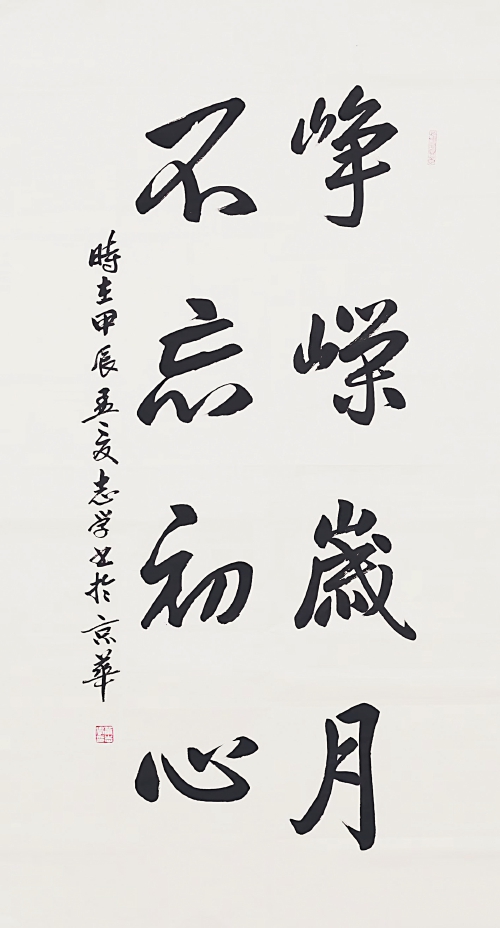 峥嵘歲月
不忘初心
時在甲辰孟夏志学书於京華